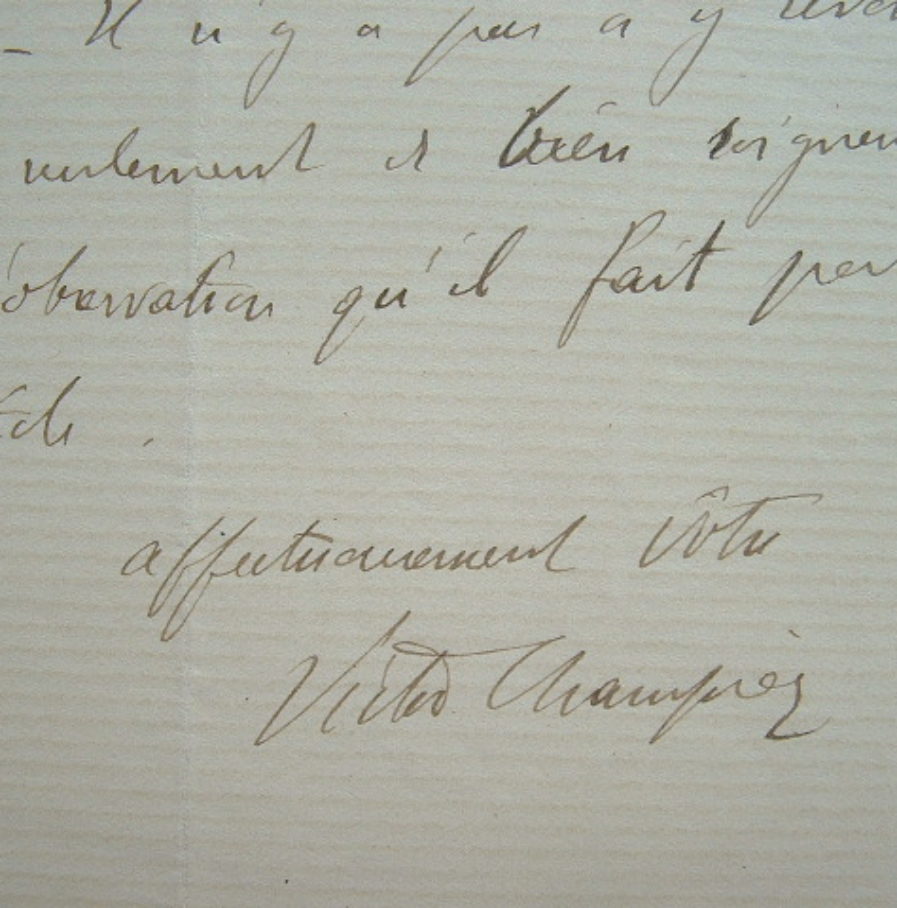 - Il n'y a pas à y reve
seulement et bien soigneu
l'observation qu'il fait par
affectueusement vôtre
Victor Champier